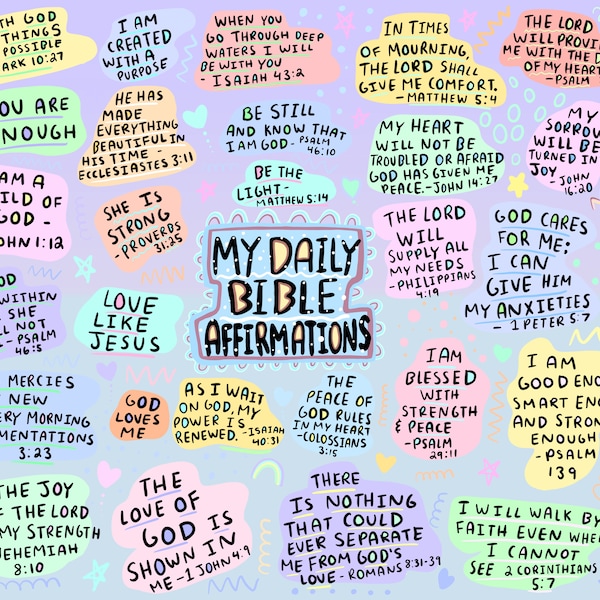 TH GOD
THINGS
POSSIBLE
ARK 10:27
I AM
CREATED
WITH A
PURPOSE
WHEN YOU
GO THROUGH DEEP
WATERS I WILL
BE WITH YOU
- ISAIAH 43:2
IN TIMES
OF MOURNING,
THE LORD SHALL
GIVE ME COMFORT.
-MATTHEW 5:4
THE LORD
WILL PROVID
ME WITH THE D
OF MY HEART
-PSALM
YOU ARE
ENOUGH
HE HAS
MADE
EVERYTHING
BEAUTIFUL IN
HIS TIME -
ECCLESIASTES 3:11
BE STILL
AND KNOW THAT
I AM GOD - PSALM
46:10
MY HEART
WILL NOT BE
TROUBLED OR AFRAID
GOD HAS GIVEN ME
PEACE.-JOHN 14:27
MY
SORROW
WILL BE
TURNED IN
JOY - JOHN
16:20
AM A
ILD OF
GOD -
OHN 1:12
SHE IS
STRONG
-PROVERBS
31:25
BE THE
LIGHT-
MATTHEW 5:14
THE LORD
WILL
SUPPLY ALL
MY NEEDS
-PHILIPPIANS
4:19
GOD CARES
FOR ME;
I CAN
GIVE HIM
MY ANXIETIES -
1 PETER 5:7
MY DAILY
BIBLE
AFFIRMATIONS
OD
WITHIN
SHE
LL NOT
- PSALM
46:5
LOVE
LIKE
JESUS
MERCIES
NEW
ERY MORNING
MENTATIONS
3:23
GOD
LOVES
ME
AS I WAIT
ON GOD, MY
POWER IS
RENEWED. -ISAIAH
40:31
THE
PEACE OF
GOD RULES
IN MY HEART
-COLOSSIANS
3:15
I AM
BLESSED
WITH
STRENGTH
& PEACE
-PSALM
29:11
I AM
GOOD ENOU
SMART ENOU
AND STRON
ENOUGH
-PSALM
139
THE JOY
OF THE LORD
MY STRENGTH
NEHEMIAH
8:10
THE
LOVE OF
GOD IS
SHOWN IN
ME -1 JOHN 4:9
THERE
IS NOTHING
THAT COULD
EVER SEPARATE
ME FROM GOD'S
LOVE - ROMANS 8:31-39
I WILL WALK BY
FAITH EVEN WHEN
I CANNOT
SEE 2 CORINTHIANS
5:7